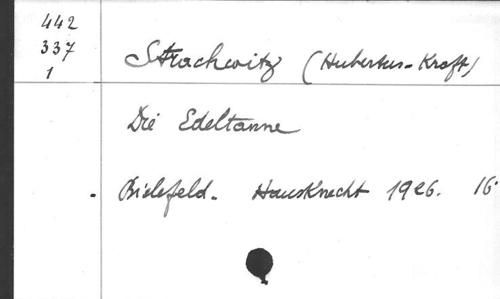 442
337
1
Strachwitz (Hubertus-Kraft)
Die Edeltanne
Bielefeld. Hausknecht 1926. 16°